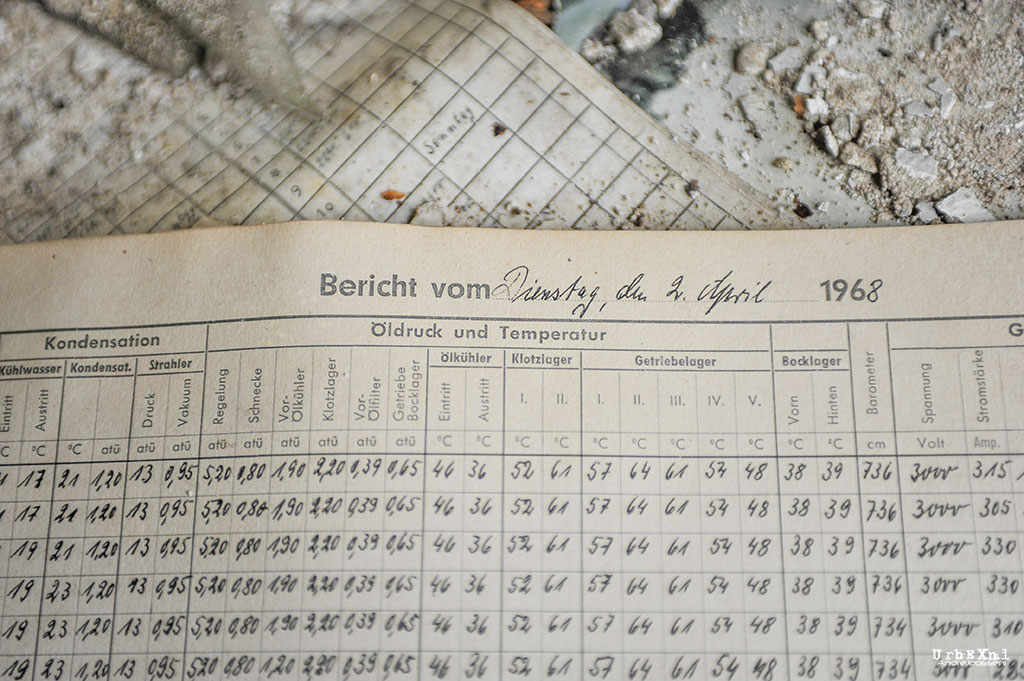 Sonntag
9
Bericht vom Dienstag, den 2. April 1968
Kondensation Öldruck und Temperatur G
Kühlwasser Kondensat. Strahler Ölkühler Klotzlager Getriebelager Bocklager
Eintritt Austritt Druck Vakuum Regelung Schnecke Vor-Ölkühler Klotzlager Vor-Ölfilter Getriebe Bocklager Eintritt Austritt I. II. I. II. III. IV. V. Vorn Hinten Barometer Spannung Stromstärke
°C °C °C atü atü atü atü atü atü atü atü atü °C °C °C °C °C °C °C °C °C °C °C cm Volt Amp.
17 21 1,20 13 0,95 5,20 0,80 1,90 2,20 0,39 0,65 46 36 52 61 57 64 61 54 48 38 39 736 3000 315
17 21 1,20 13 0,95 5,20 0,80 1,90 2,20 0,39 0,65 46 36 52 61 57 64 61 54 48 38 39 736 3000 305
19 21 1,20 13 0,95 5,20 0,80 1,90 2,20 0,39 0,65 46 36 52 61 57 64 61 54 48 38 39 736 3000 330
19 23 1,20 13 0,95 5,20 0,80 1,90 2,20 0,39 0,65 46 36 52 61 57 64 61 54 48 38 39 736 3000 330
19 23 1,20 13 0,95 5,20 0,80 1,90 2,20 0,39 0,65 46 36 52 61 57 64 61 54 48 38 39 734 3000 310
19 23 1,20 13 0,95 5,20 0,80 1,20 2,20 0,39 0,65 46 36 52 61 57 64 61 54 48 38 39 734 3000
UrbEXnl